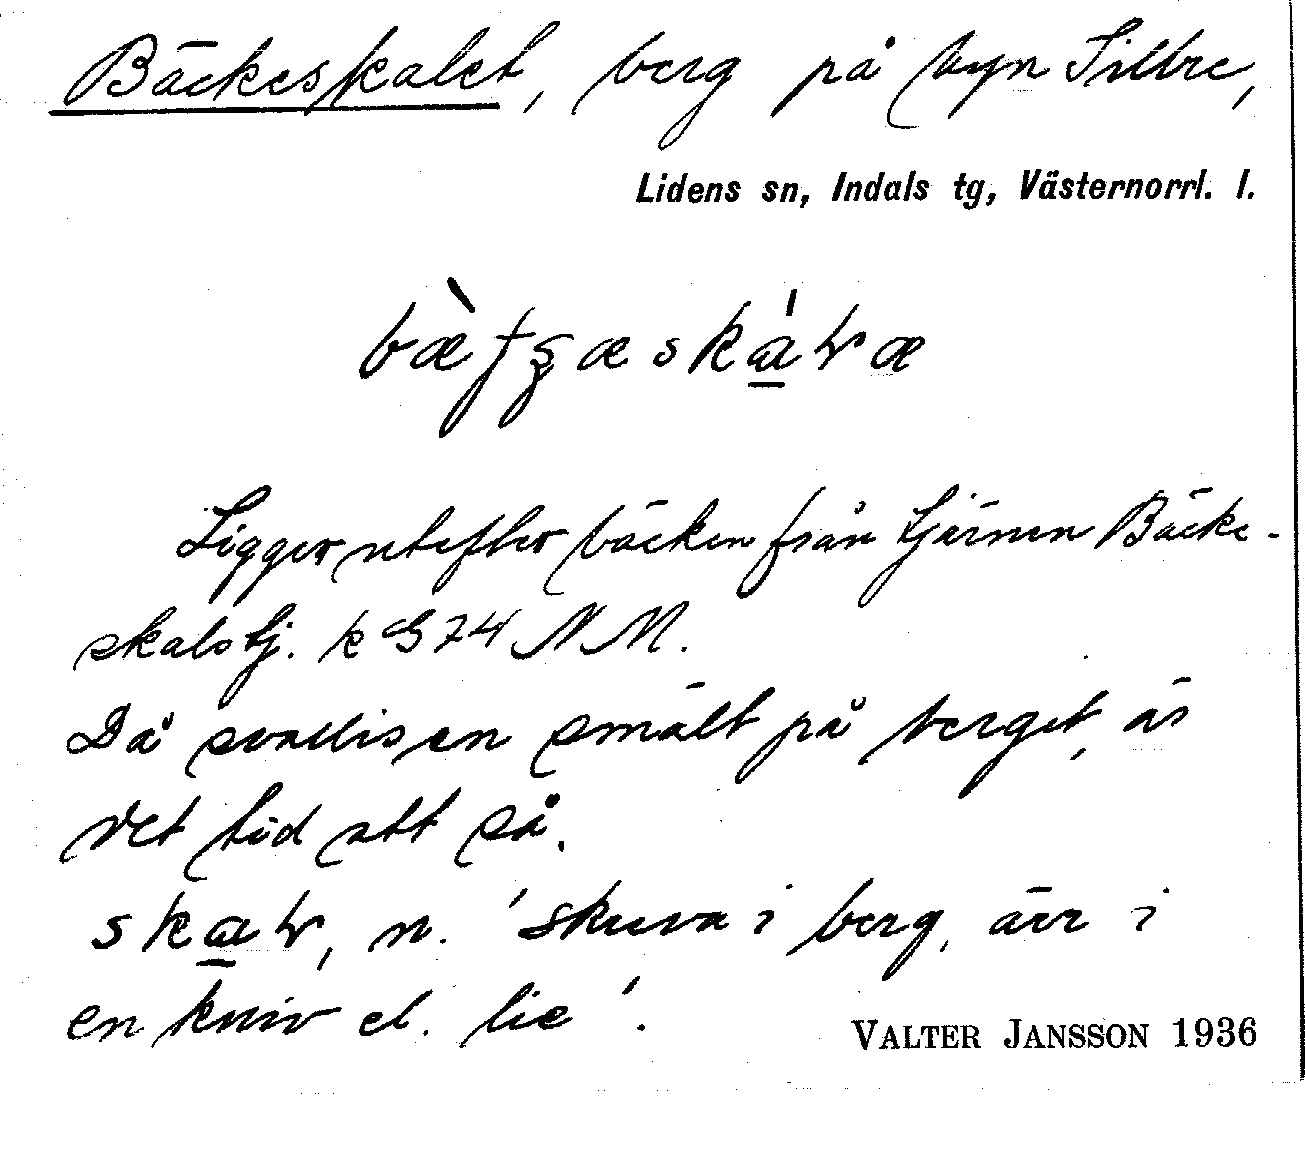 Bäckeskalet, berg på byn Sillre,
Lidens sn, Indals tg, Västernorrl. l.
Ligger utefter bäcken från tjärnen Bäcke-
skalstj. k G 74 NM.
Då svallisen smält på berget, är
det tid att så.
n. 'skuva i berg, äv. i
en kniv el. lie'.
VALTER JANSSON 1936